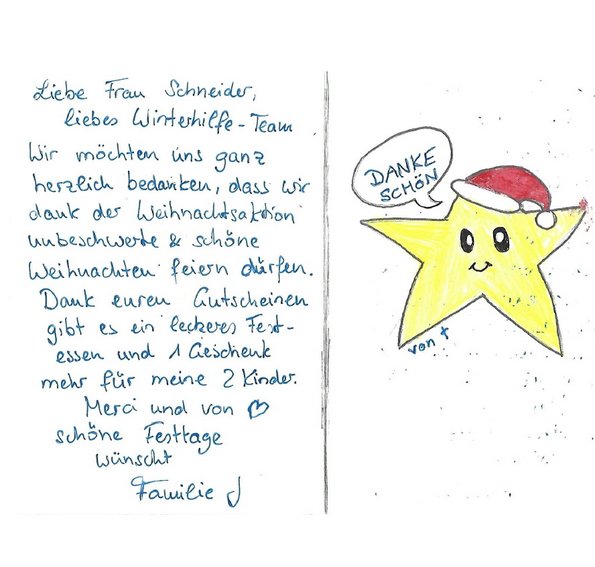 Liebe Frau Schneider,
liebes Winterhilfe-Team
Wir möchten uns ganz
herzlich bedanken, dass wir
dank der Weihnachtsaktion
unbeschwerte & schöne
Weihnachten feiern dürfen.
Dank euren Gutscheinen
gibt es ein leckeres Fest-
essen und 1 Geschenk
mehr für meine 2 Kinder.
Merci und von ♡
schöne Festtage
wünscht
Familie J
DANKE
SCHÖN
von t